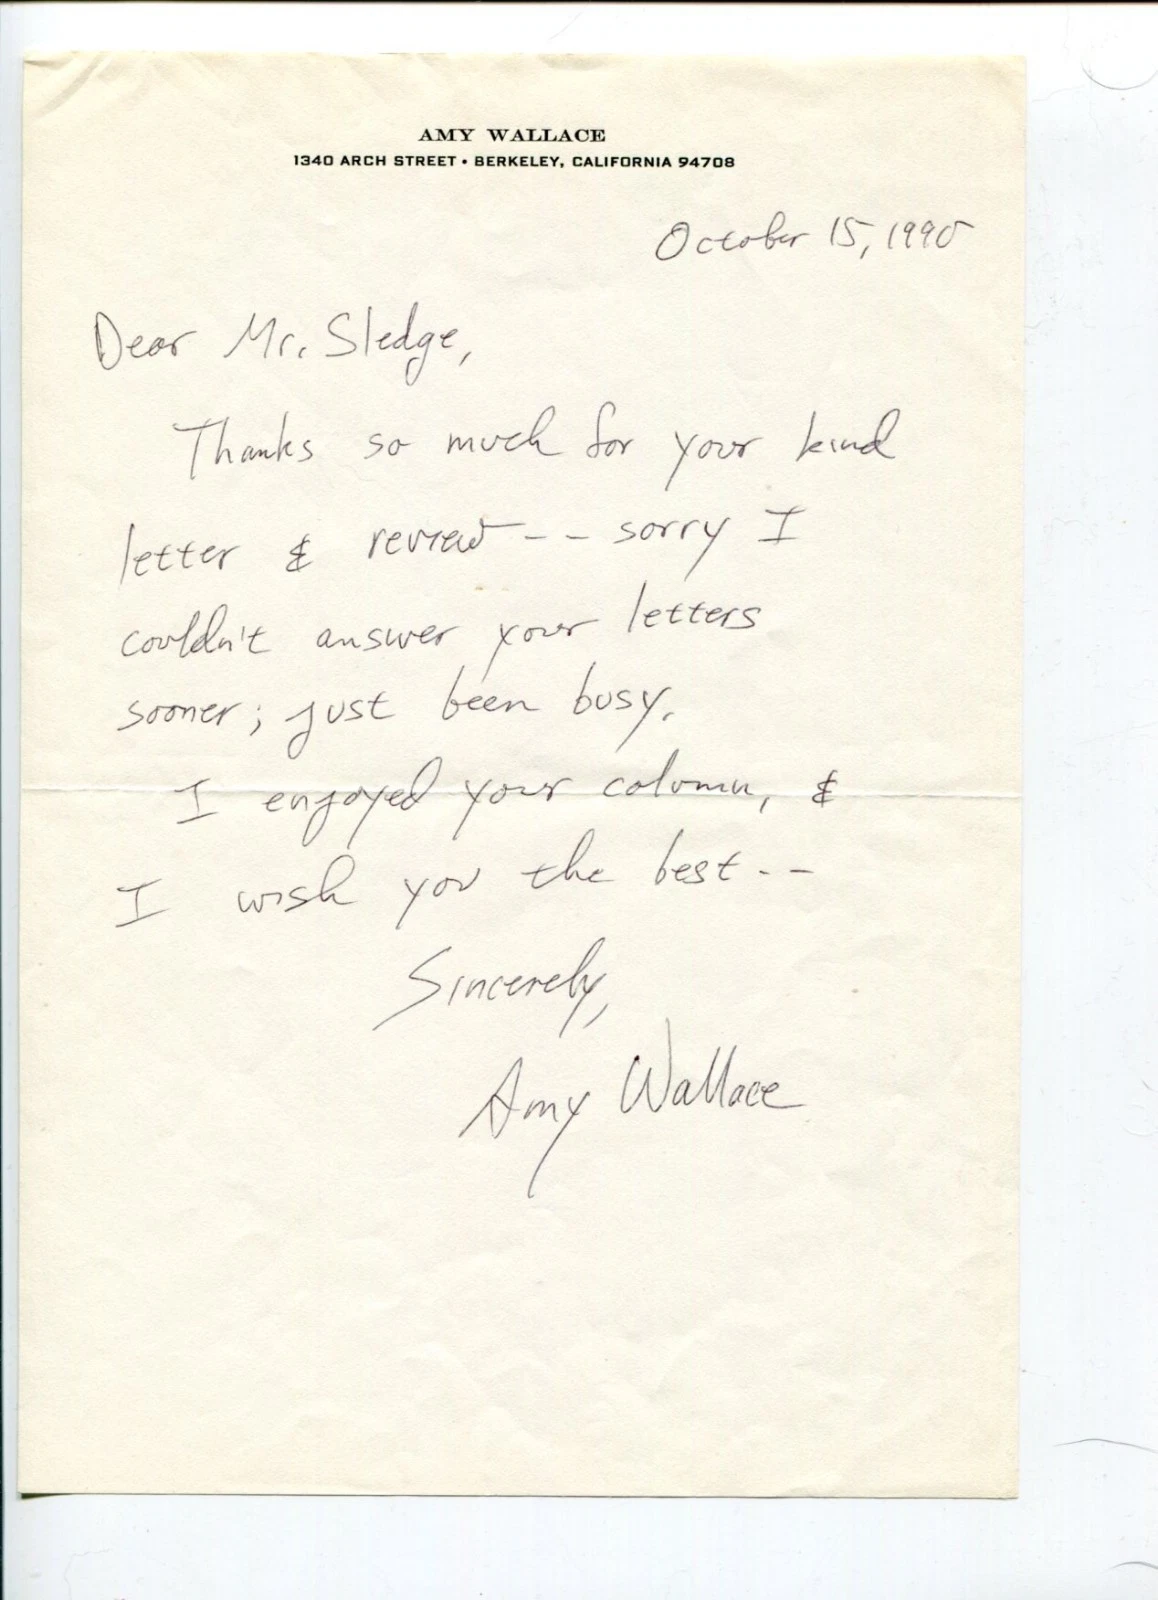 AMY WALLACE
1340 ARCH STREET • BERKELEY, CALIFORNIA 94708
October 15, 1990
Dear Mr. Sledge,
Thanks so much for your kind
letter & review -- sorry I
couldn't answer your letters
sooner; just been busy.
I enjoyed your column, &
I wish you the best --
Sincerely,
Amy Wallace